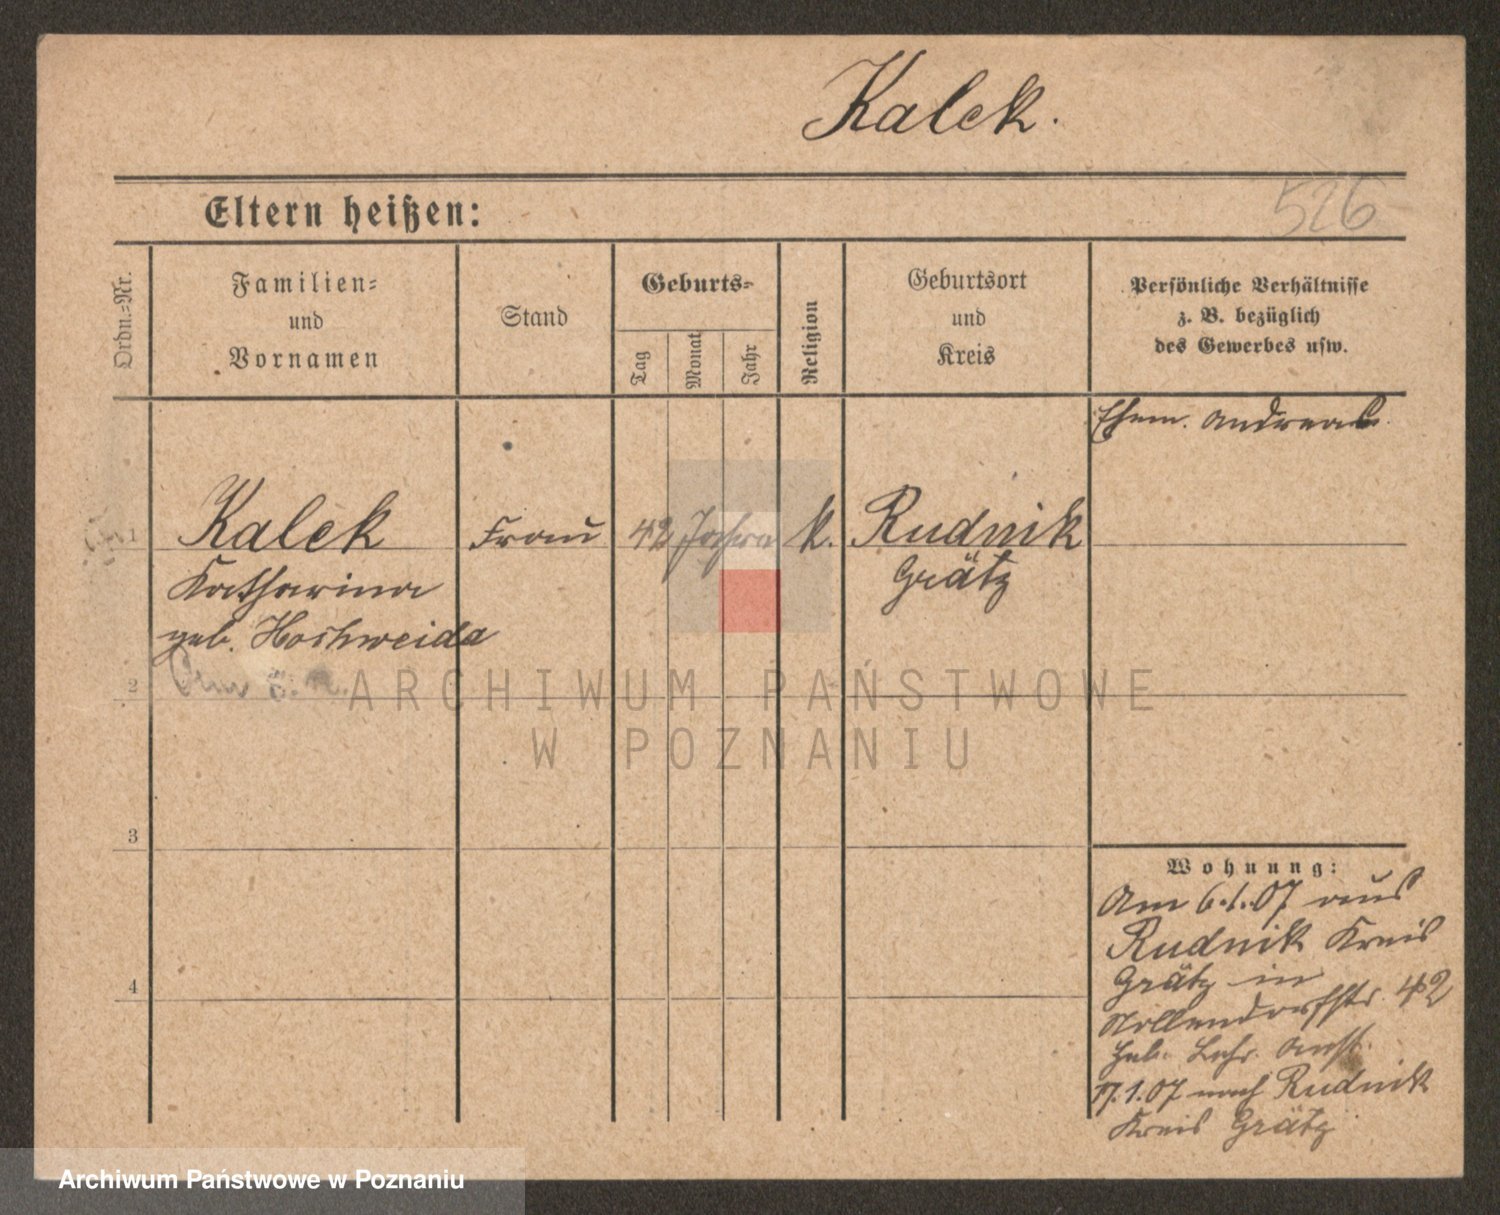 Kalek.
526
Eltern heißen:
Ordn.-Nr.
Familien-
und
Vornamen
Stand
Geburts-
Tag
Monat
Jahr
Religion
Geburtsort
und
Kreis
Persönliche Verhältnisse
z. B. bezüglich
des Gewerbes usw.
Ehem. Andreas
1
Kalek Frau 42 Jahre k. Rudnik
Katharina Grätz
geb. Hoschweida
2
ARCHIWUM PAŃSTWOWE
W POZNANIU
3
4
Wohnung:
Am 6.1.07 aus
Rudnik Kreis
Grätz in
Nollendorfstr. 42
Heb. Lehr. Anst.
17.1.07 nach Rudnik
Kreis Grätz
Archiwum Państwowe w Poznaniu